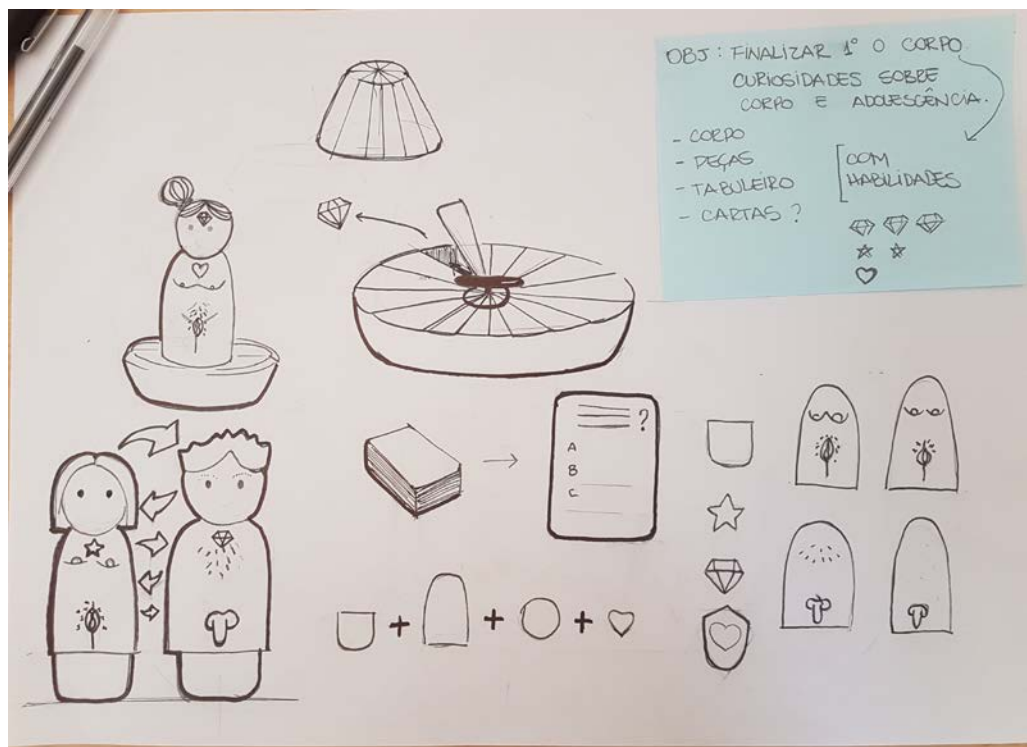 OBJ: FINALIZAR 1º O CORPO.
CURIOSIDADES SOBRE
CORPO E ADOLESCÊNCIA.
- CORPO
- PEÇAS
- TABULEIRO
- CARTAS ?
COM
HABILIDADES
?
A
B
C